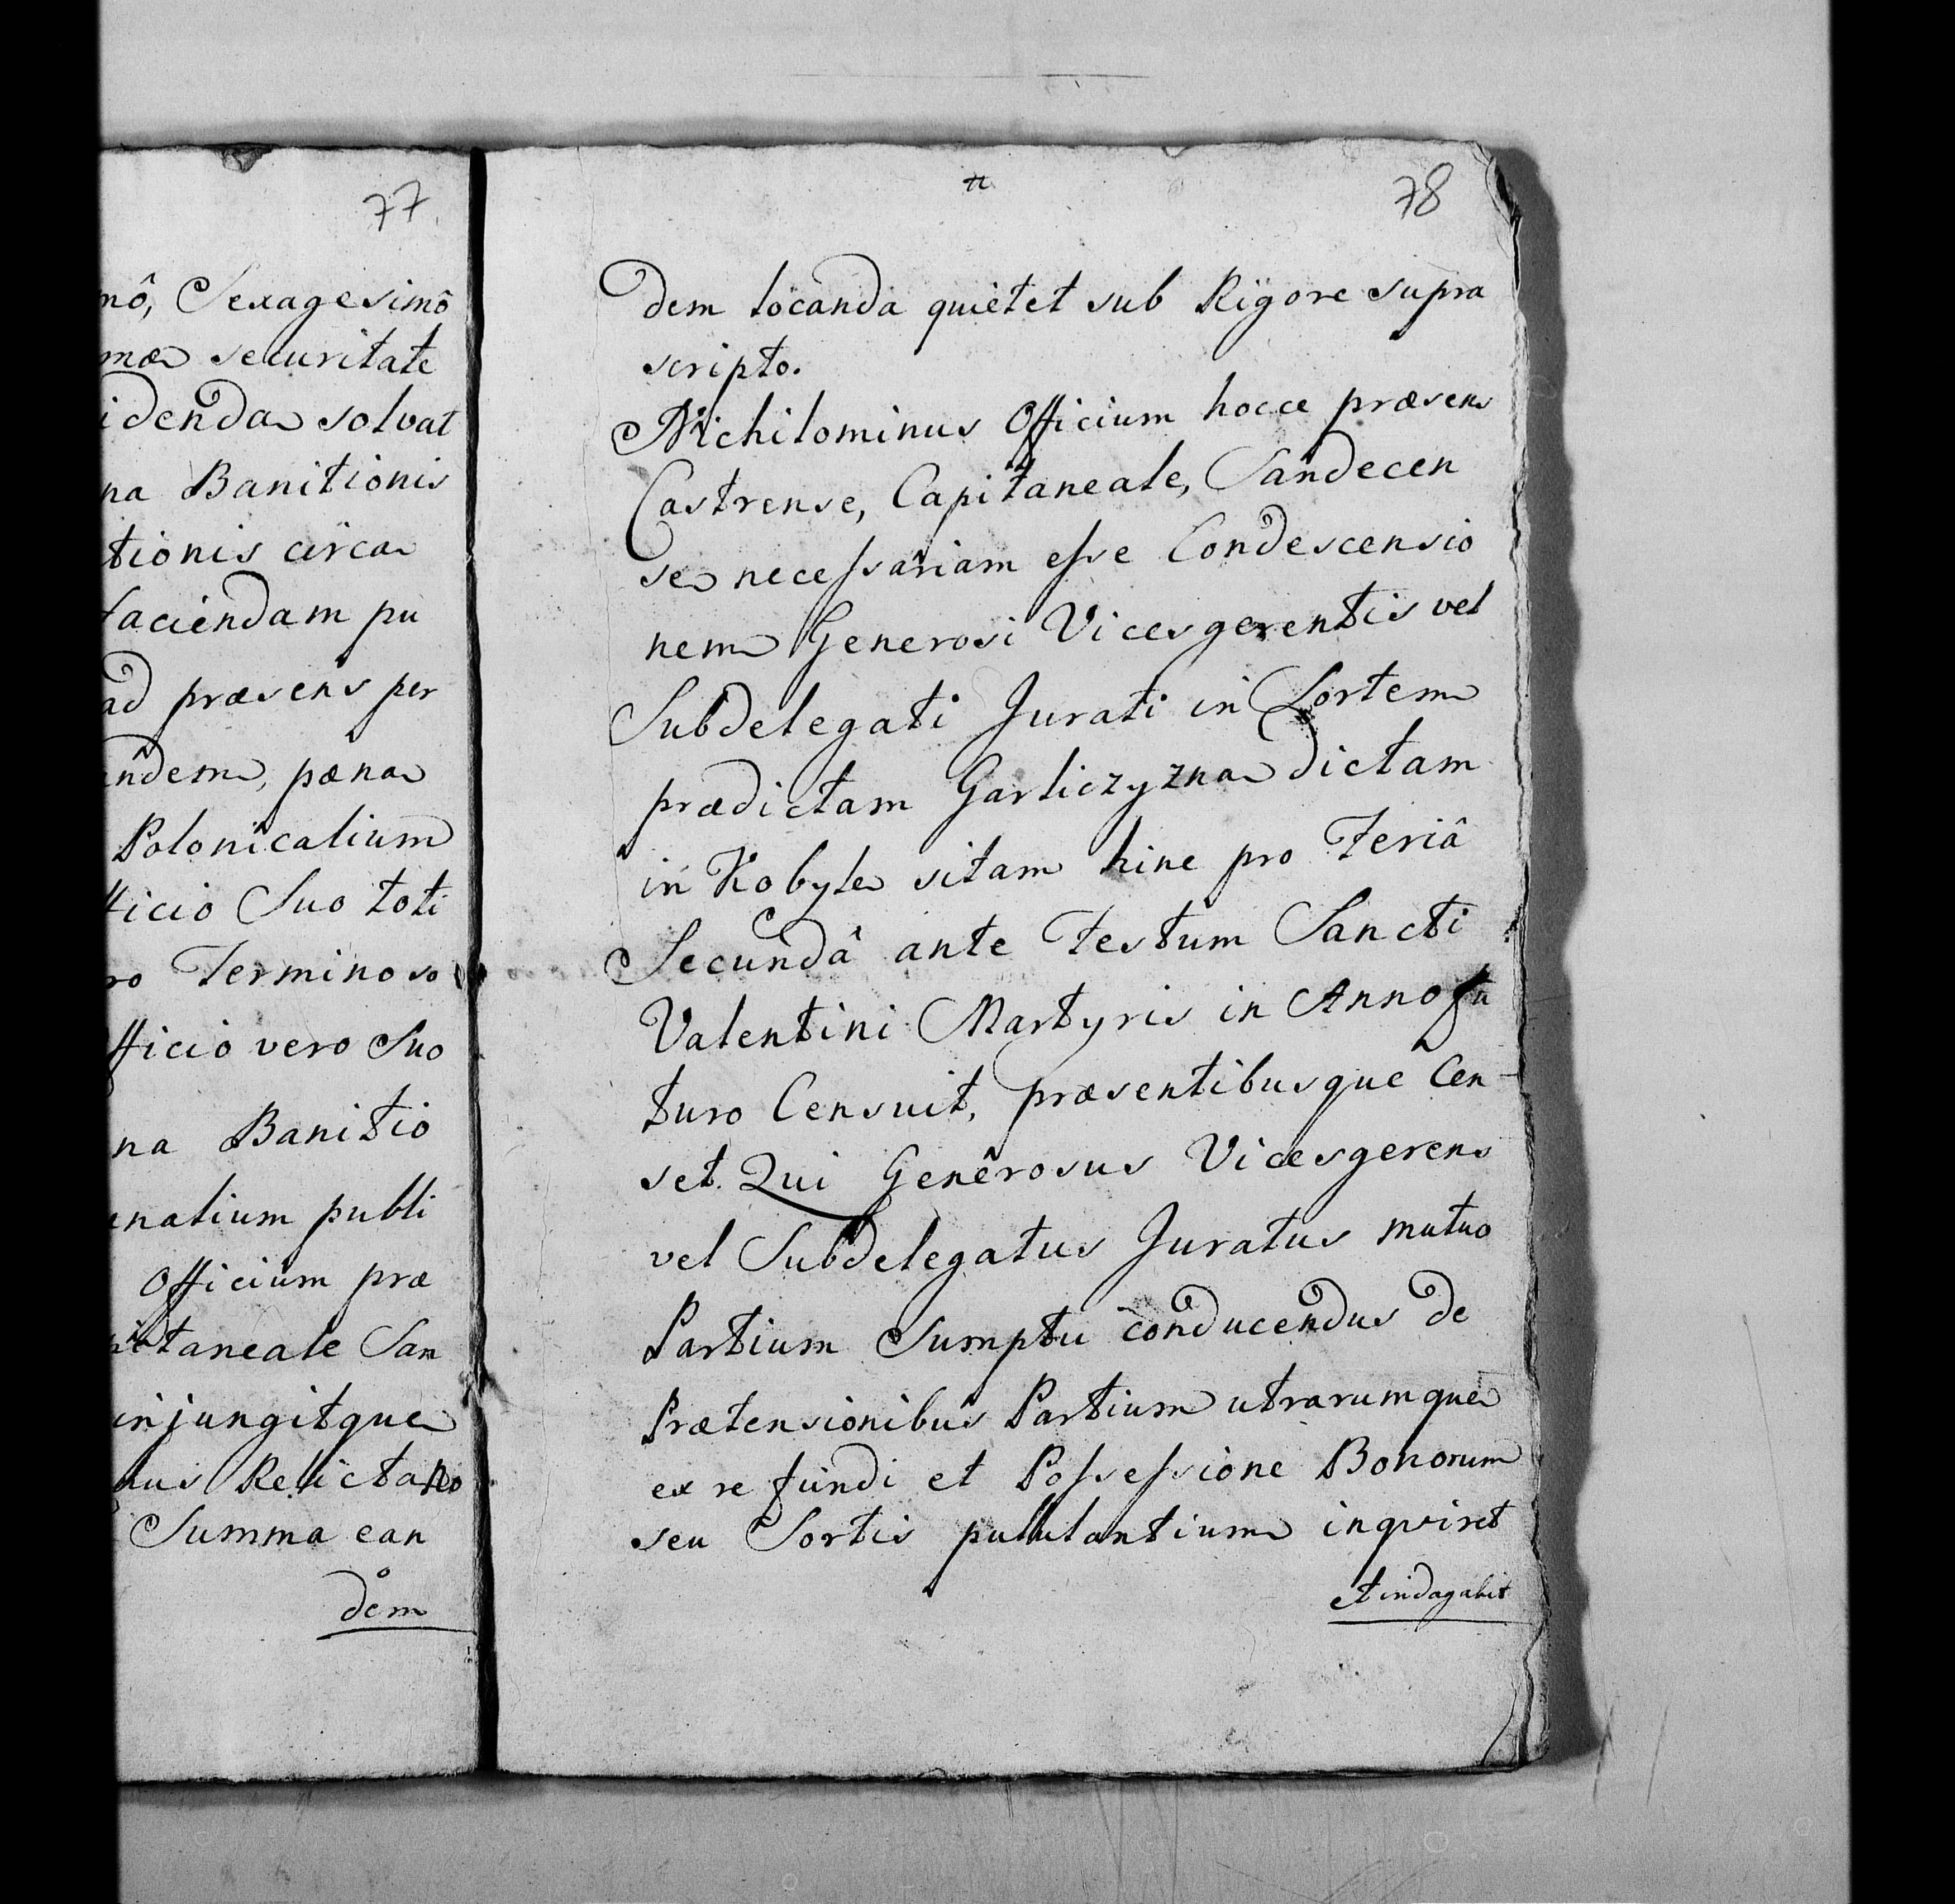 77
mô, Sexagesimô
mæ securitate
idenda solvat
na Banitionis
tionis circa
faciendam pu
ad præsens per
andem, pæna
Polonicalium
fficio Suo toti
ro Termino so
fficio vero Suo
na Banitio
nalium publi
Officium præ
pitaneale San
injungitque
nus Relicta
Summa ean
dem
78
dem locanda quietet sub Rigore supra
scripto.
Nichilominus Officium hocce præsens
Castrense, Capitaneale, Sandecen
se necessariam esse Condescensio
nem Generosi Vicesgerentis vel
Subdelegati Jurati in Sortem
prædictam Garliczyzna dictam
in Kobyle sitam hinc pro Feriâ
Secundâ ante Festum Sancti
Valentini Martyris in Anno fu
turo Censuit, præsentibusque Cen
set. Qui Generosus Vicesgerens
vel Subdelegatus Juratus mutuo
Partium Sumptu conducendus de
Prætensionibus Partium utrarumque
ex re fundi et Possessione Bonorum
seu Sortis pullulantium inquiret
et indagabit